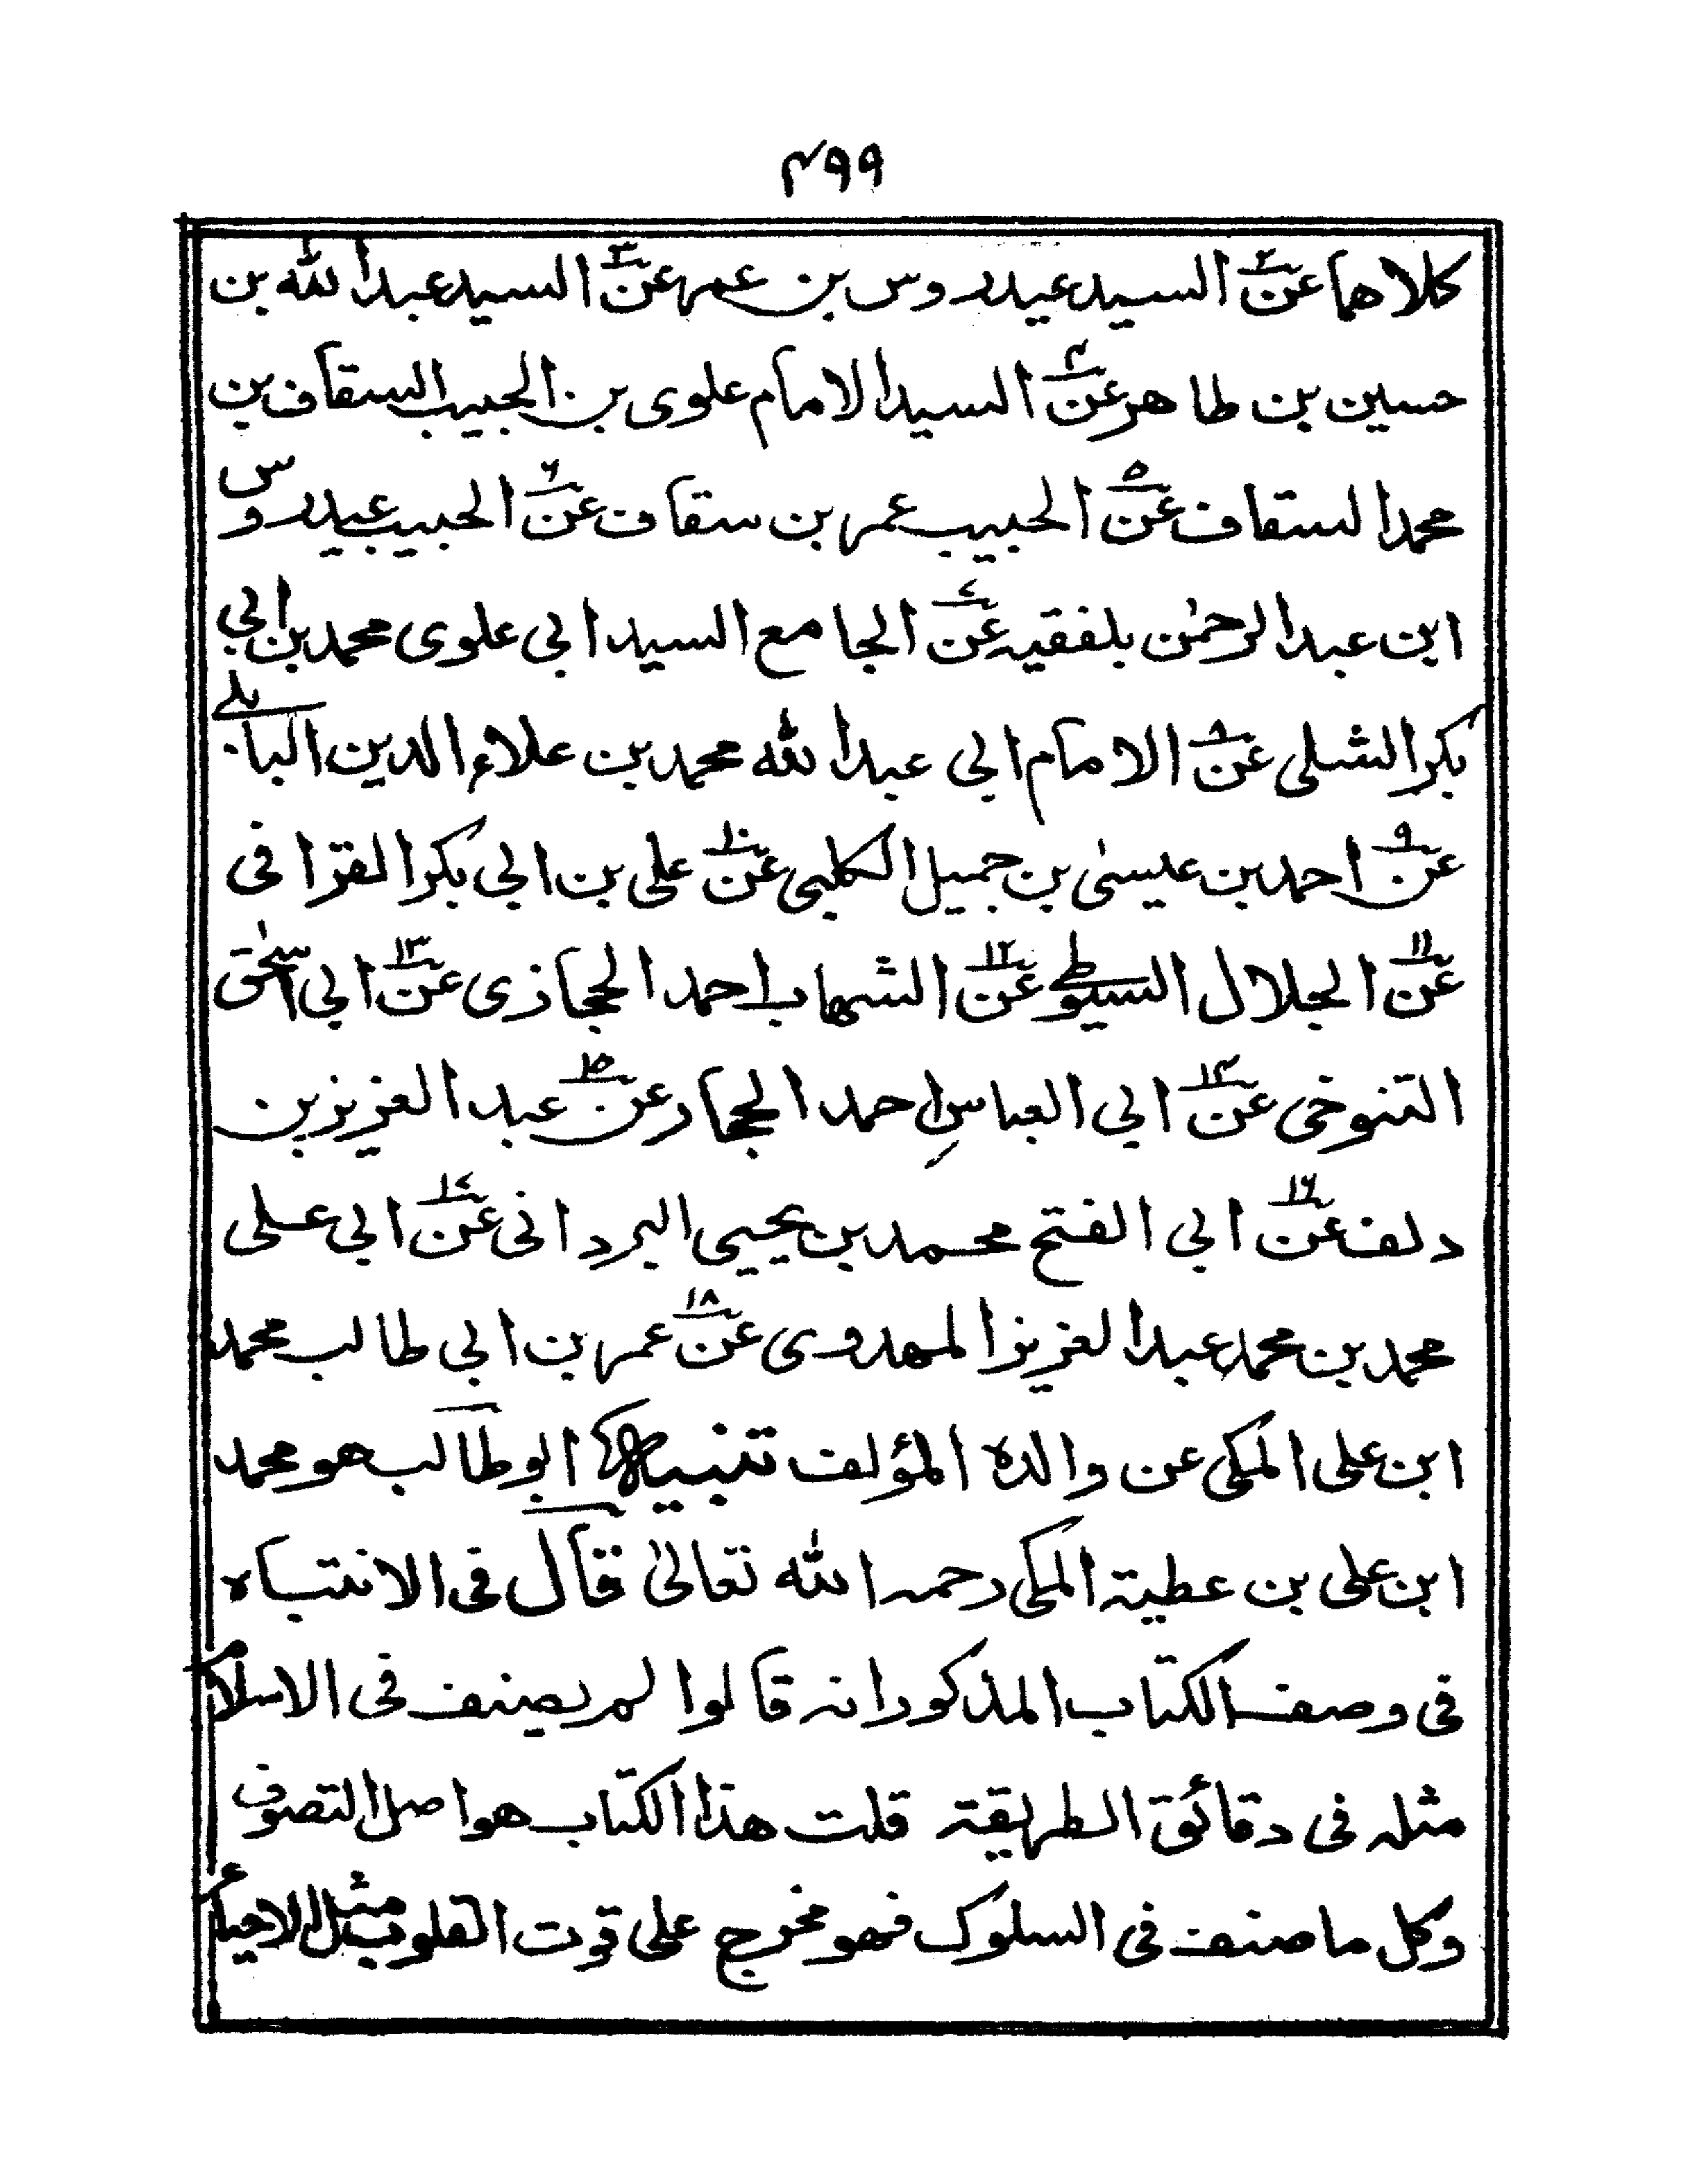 ۴۹۹
كلاهما عن۲ السيد عيدروس بن عمر عن۳ السيد عبد الله بن
حسين بن طاهر عن۴ السيد الامام علوى بن الحبيب السقاف بن
محمد السقاف عن۵ الحبيب عمر بن سقاف عن۶ الحبيب عيدروس
ابن عبد الرحمٰن بلفقيه عن۷ الجامع السيد ابي علوى محمد بن ابي
بكر الشلى عن۸ الامام ابي عبد الله محمد بن علاء الدين البابلي
عن۹ احمد بن عيسىٰ بن جميل الكلبى عن۱۰ على بن ابي بكر القرافى
عن۱۱ الجلال السيوطي عن۱۲ الشهاب احمد الحجازى عن۱۳ ابي اسحٰق
التنوخى عن۱۴ ابي العباس احمد الحجار عن۱۵ عبد العزيز بن
دلف عن۱۶ ابي الفتح محمد بن يحيى البردانى عن۱۷ ابي على
محمد بن محمد عبد العزيز المهدوى عن۱۸ عمر بن ابي طالب محمد
ابن على المكى عن والده المؤلف تنبيه ابو طالب هو محمد
ابن على بن عطية المكى رحمه الله تعالىٰ قال فى الانتباه
فى وصف الكتاب المذكور انه قالوا لم يصنف فى الاسلام
مثله فى دقائق الطريقة قلت هذا الكتاب هو اصل التصوف
وكل ما صنف فى السلوك فهو مخرج على قوت القلوب مثل الاحياء